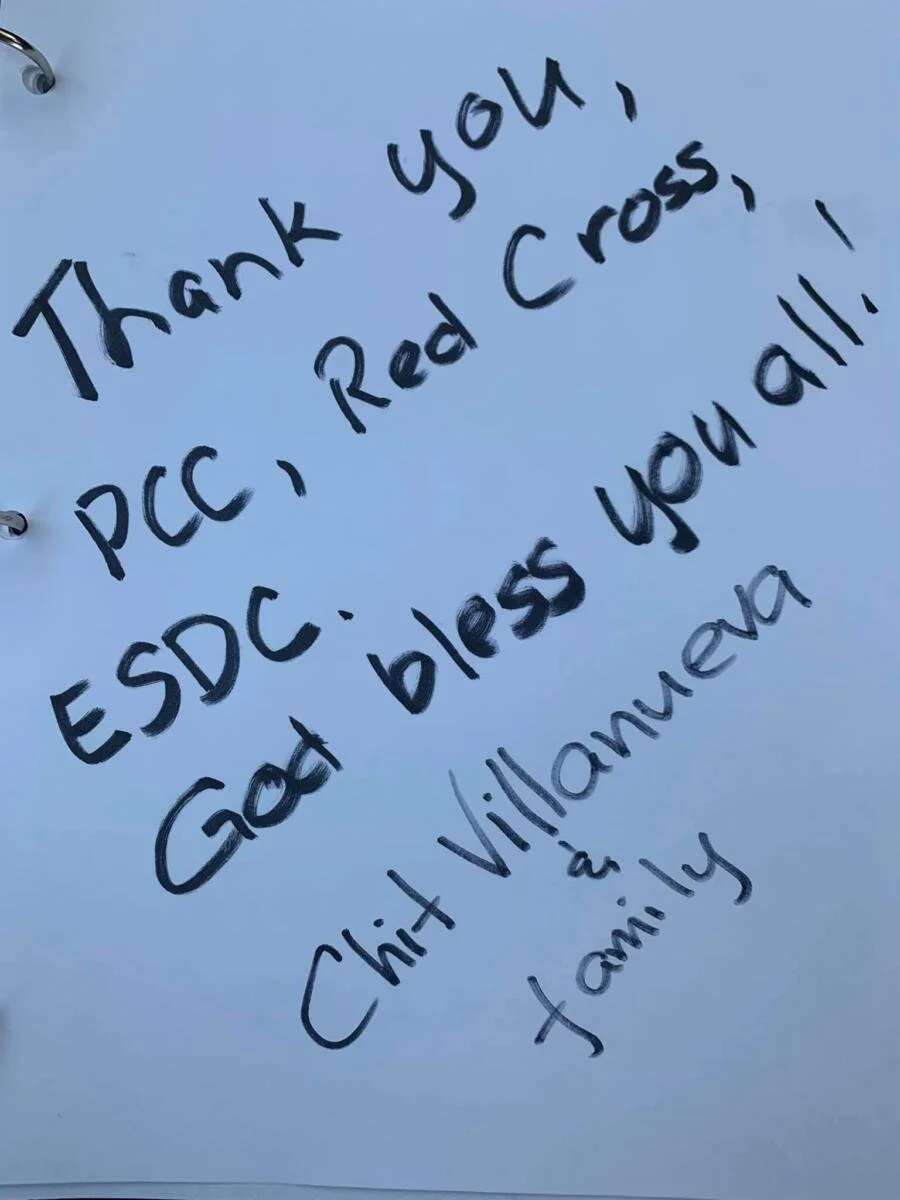 Thank you,
PCC, Red Cross,
ESDC.
God bless you all!
Chit Villanueva
&
family